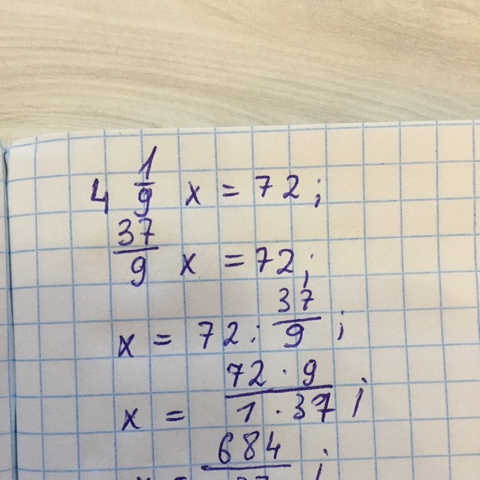 4 1/9 x = 72;
37/9 x = 72;
x = 72 : 37/9 ;
x = 72 · 9 / 1 · 37 ;
x = 684 / 37 ;